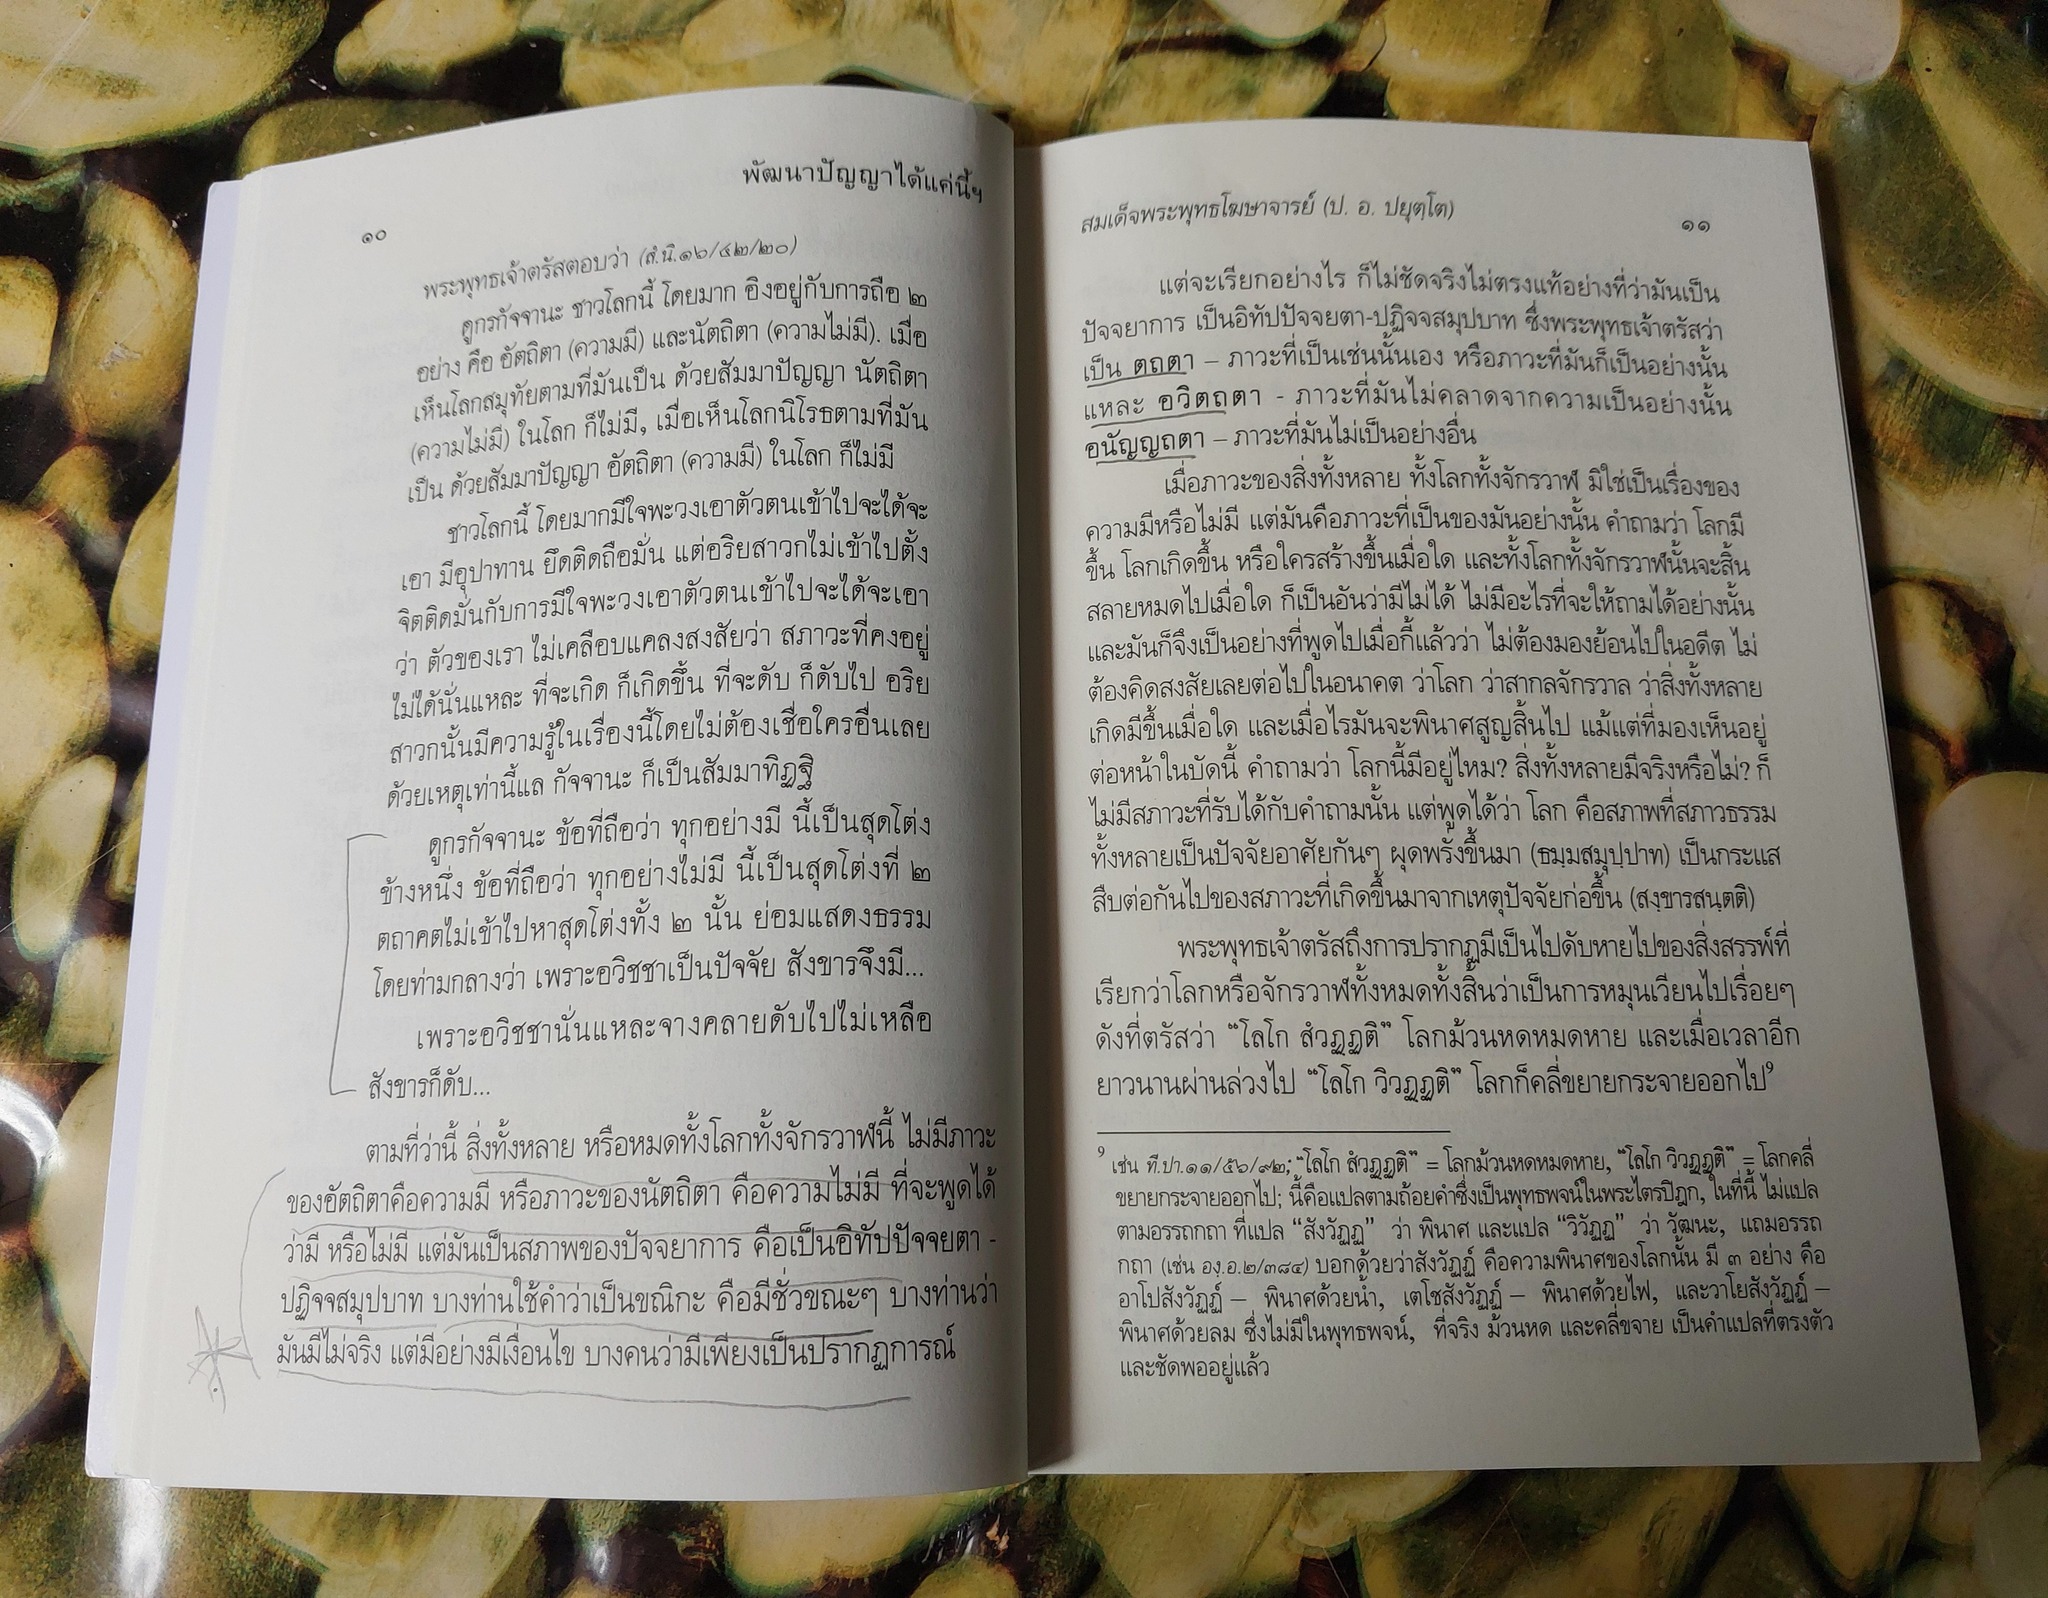 พัฒนาปัญญาได้แค่นี้ฯ
๑๐
พระพุทธเจ้าตรัสตอบว่า (สํ.นิ.๑๖/๔๒/๒๐)
ดูกรกัจจานะ ชาวโลกนี้ โดยมาก อิงอยู่กับการถือ ๒
อย่าง คือ อัตถิตา (ความมี) และนัตถิตา (ความไม่มี). เมื่อ
เห็นโลกสมุทัยตามที่มันเป็น ด้วยสัมมาปัญญา นัตถิตา
(ความไม่มี) ในโลก ก็ไม่มี, เมื่อเห็นโลกนิโรธตามที่มัน
เป็น ด้วยสัมมาปัญญา อัตถิตา (ความมี) ในโลก ก็ไม่มี
ชาวโลกนี้ โดยมากมีใจพะวงเอาตัวตนเข้าไปจะได้จะ
เอา มีอุปาทาน ยึดติดถือมั่น แต่อริยสาวกไม่เข้าไปตั้ง
จิตติดมั่นกับการมีใจพะวงเอาตัวตนเข้าไปจะได้จะเอา
ว่า ตัวของเรา ไม่เคลือบแคลงสงสัยว่า สภาวะที่คงอยู่
ไม่ได้นั่นแหละ ที่จะเกิด ก็เกิดขึ้น ที่จะดับ ก็ดับไป อริย
สาวกนั้นมีความรู้ในเรื่องนี้โดยไม่ต้องเชื่อใครอื่นเลย
ด้วยเหตุเท่านี้แล กัจจานะ ก็เป็นสัมมาทิฏฐิ
ดูกรกัจจานะ ข้อที่ถือว่า ทุกอย่างมี นี้เป็นสุดโต่ง
ข้างหนึ่ง ข้อที่ถือว่า ทุกอย่างไม่มี นี้เป็นสุดโต่งที่ ๒
ตถาคตไม่เข้าไปหาสุดโต่งทั้ง ๒ นั้น ย่อมแสดงธรรม
โดยท่ามกลางว่า เพราะอวิชชาเป็นปัจจัย สังขารจึงมี...
เพราะอวิชชานั่นแหละจางคลายดับไปไม่เหลือ
สังขารก็ดับ...
ตามที่ว่านี้ สิ่งทั้งหลาย หรือหมดทั้งโลกทั้งจักรวาฬนี้ ไม่มีภาวะ
ของอัตถิตาคือความมี หรือภาวะของนัตถิตา คือความไม่มี ที่จะพูดได้
ว่ามี หรือไม่มี แต่มันเป็นสภาพของปัจจยาการ คือเป็นอิทัปปัจจยตา -
ปฏิจจสมุปบาท บางท่านใช้คำว่าเป็นขณิกะ คือมีชั่วขณะๆ บางท่านว่า
มันมีไม่จริง แต่มีอย่างมีเงื่อนไข บางคนว่ามีเพียงเป็นปรากฏการณ์
สมเด็จพระพุทธโฆษาจารย์ (ป. อ. ปยุตฺโต)
๑๑
แต่จะเรียกอย่างไร ก็ไม่ชัดจริงไม่ตรงแท้อย่างที่ว่ามันเป็น
ปัจจยาการ เป็นอิทัปปัจจยตา-ปฏิจจสมุปบาท ซึ่งพระพุทธเจ้าตรัสว่า
เป็น ตถตา – ภาวะที่เป็นเช่นนั้นเอง หรือภาวะที่มันก็เป็นอย่างนั้น
แหละ อวิตถตา - ภาวะที่มันไม่คลาดจากความเป็นอย่างนั้น
อนัญญถตา – ภาวะที่มันไม่เป็นอย่างอื่น
เมื่อภาวะของสิ่งทั้งหลาย ทั้งโลกทั้งจักรวาฬ มิใช่เป็นเรื่องของ
ความมีหรือไม่มี แต่มันคือภาวะที่เป็นของมันอย่างนั้น คำถามว่า โลกมี
ขึ้น โลกเกิดขึ้น หรือใครสร้างขึ้นเมื่อใด และทั้งโลกทั้งจักรวาฬนั้นจะสิ้น
สลายหมดไปเมื่อใด ก็เป็นอันว่ามีไม่ได้ ไม่มีอะไรที่จะให้ถามได้อย่างนั้น
และมันก็จึงเป็นอย่างที่พูดไปเมื่อกี้แล้วว่า ไม่ต้องมองย้อนไปในอดีต ไม่
ต้องคิดสงสัยเลยต่อไปในอนาคต ว่าโลก ว่าสากลจักรวาล ว่าสิ่งทั้งหลาย
เกิดมีขึ้นเมื่อใด และเมื่อไรมันจะพินาศสูญสิ้นไป แม้แต่ที่มองเห็นอยู่
ต่อหน้าในบัดนี้ คำถามว่า โลกนี้มีอยู่ไหม? สิ่งทั้งหลายมีจริงหรือไม่? ก็
ไม่มีสภาวะที่รับได้กับคำถามนั้น แต่พูดได้ว่า โลก คือสภาพที่สภาวธรรม
ทั้งหลายเป็นปัจจัยอาศัยกันๆ ผุดพรั่งขึ้นมา (ธมฺมสมุปฺปาท) เป็นกระแส
สืบต่อกันไปของสภาวะที่เกิดขึ้นมาจากเหตุปัจจัยก่อขึ้น (สงฺขารสนฺตติ)
พระพุทธเจ้าตรัสถึงการปรากฏมีเป็นไปดับหายไปของสิ่งสรรพ์ที่
เรียกว่าโลกหรือจักรวาฬทั้งหมดทั้งสิ้นว่าเป็นการหมุนเวียนไปเรื่อยๆ
ดังที่ตรัสว่า “โลโก สํวฏฺฏติ” โลกม้วนหดหมดหาย และเมื่อเวลาอีก
ยาวนานผ่านล่วงไป “โลโก วิวฏฺฏติ” โลกก็คลี่ขยายกระจายออกไป๑
๑ เช่น ที.ปา.๑๑/๕๖/๙๒; “โลโก สํวฏฺฏติ” = โลกม้วนหดหมดหาย, “โลโก วิวฏฺฏติ” = โลกคลี่
ขยายกระจายออกไป; นี้คือแปลตามถ้อยคำซึ่งเป็นพุทธพจน์ในพระไตรปิฎก, ในที่นี้ ไม่แปล
ตามอรรถกถา ที่แปล “สังวัฏฏ” ว่า พินาศ และแปล “วิวัฏฏ” ว่า วัฒนะ, แถมอรรถ
กถา (เช่น องฺ.อ.๒/๓๘๔) บอกด้วยว่าสังวัฏฏ์ คือความพินาศของโลกนั้น มี ๓ อย่าง คือ
อาโปสังวัฏฏ์ – พินาศด้วยน้ำ, เตโชสังวัฏฏ์ – พินาศด้วยไฟ, และวาโยสังวัฏฏ์ –
พินาศด้วยลม ซึ่งไม่มีในพุทธพจน์, ที่จริง ม้วนหด และคลี่ขจาย เป็นคำแปลที่ตรงตัว
และชัดพออยู่แล้ว